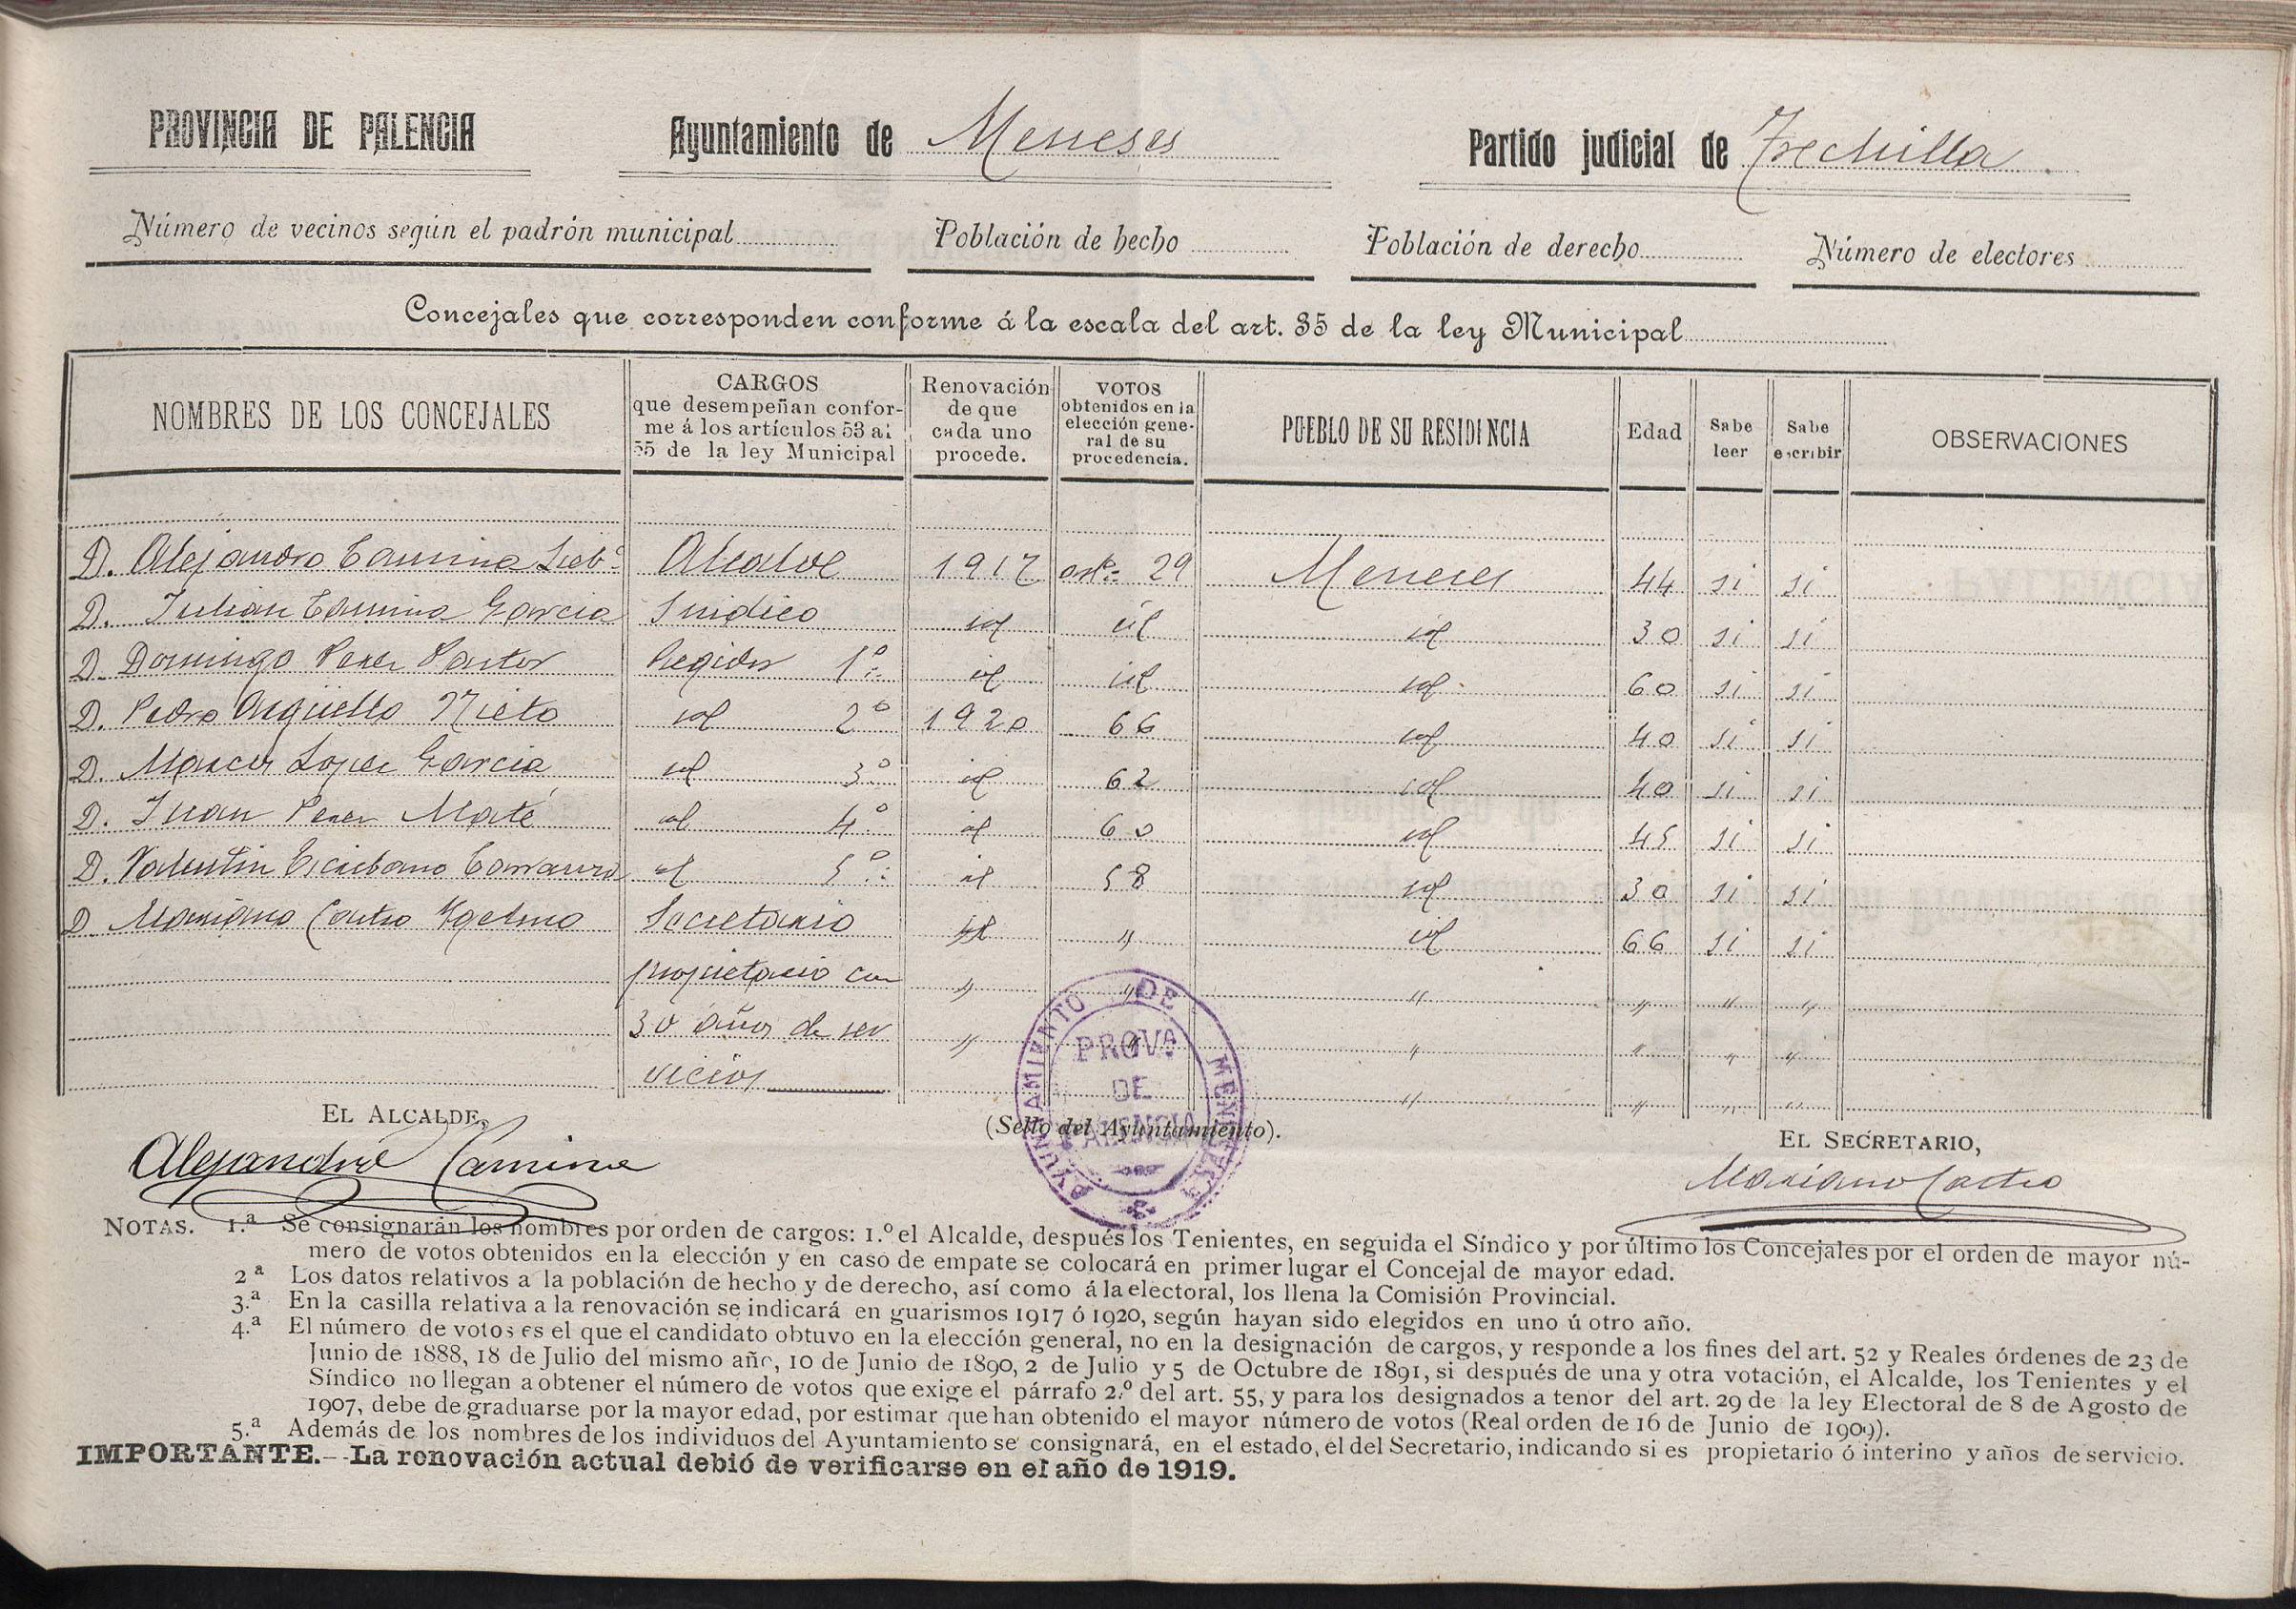 PROVINCIA DE PALENCIA
Ayuntamiento de Meneses
Partido judicial de Frechilla
Número de vecinos según el padrón municipal
Población de hecho
Población de derecho
Número de electores
Concejales que corresponden conforme á la escala del art. 35 de la ley Municipal
NOMBRES DE LOS CONCEJALES
CARGOS
que desempeñan confor-
me á los artículos 53 al
55 de la ley Municipal
Renovación
de que
cada uno
procede.
VOTOS
obtenidos en la
elección gene-
ral de su
procedencia.
PUEBLO DE SU RESIDENCIA
Edad
Sabe
leer
Sabe
escribir
OBSERVACIONES
D. Alejandro Camina Alcalde 1917 29 Meneses 44 si si
D. Julian Camina Garcia Sindico id id id 30 si si
D. Domingo Perez Pastor Regidor 1º id id id 60 si si
D. Pedro Argüello Nieto id 2º 1920 66 id 40 si si
D. Marcos Lopez Garcia id 3º id 62 id 40 si si
D. Juan Perez Maté id 4º id 60 id 45 si si
D. Valentin Escribano id 5º id 58 id 30 si si
D. Mariano Castro Secretario " id 66 si si
propietario con " " " " " "
30 años de ser " " " " " "
vicios " " " "
EL ALCALDE,
Alejandro Camina
(Sello del Ayuntamiento).
AYUNTAMIENTO DE MENESES
PROVA
DE
PALENCIA
EL SECRETARIO,
Mariano Castro
NOTAS. 1.ª Se consignarán los nombres por orden de cargos: 1.º el Alcalde, después los Tenientes, en seguida el Síndico y por último los Concejales por el orden de mayor nú-
mero de votos obtenidos en la elección y en caso de empate se colocará en primer lugar el Concejal de mayor edad.
2ª Los datos relativos a la población de hecho y de derecho, así como á la electoral, los llena la Comisión Provincial.
3.ª En la casilla relativa a la renovación se indicará en guarismos 1917 ó 1920, según hayan sido elegidos en uno ú otro año.
4.ª El número de votos es el que el candidato obtuvo en la elección general, no en la designación de cargos, y responde a los fines del art. 52 y Reales órdenes de 23 de
Junio de 1888, 18 de Julio del mismo año, 10 de Junio de 1890, 2 de Julio y 5 de Octubre de 1891, si después de una y otra votación, el Alcalde, los Tenientes y el
Síndico no llegan a obtener el número de votos que exige el párrafo 2.º del art. 55, y para los designados a tenor del art. 29 de la ley Electoral de 8 de Agosto de
1907, debe degraduarse por la mayor edad, por estimar que han obtenido el mayor número de votos (Real orden de 16 de Junio de 1909).
5.ª Además de los nombres de los individuos del Ayuntamiento se consignará, en el estado, el del Secretario, indicando si es propietario ó interino y años de servicio.
IMPORTANTE.--La renovación actual debió de verificarse en el año de 1919.